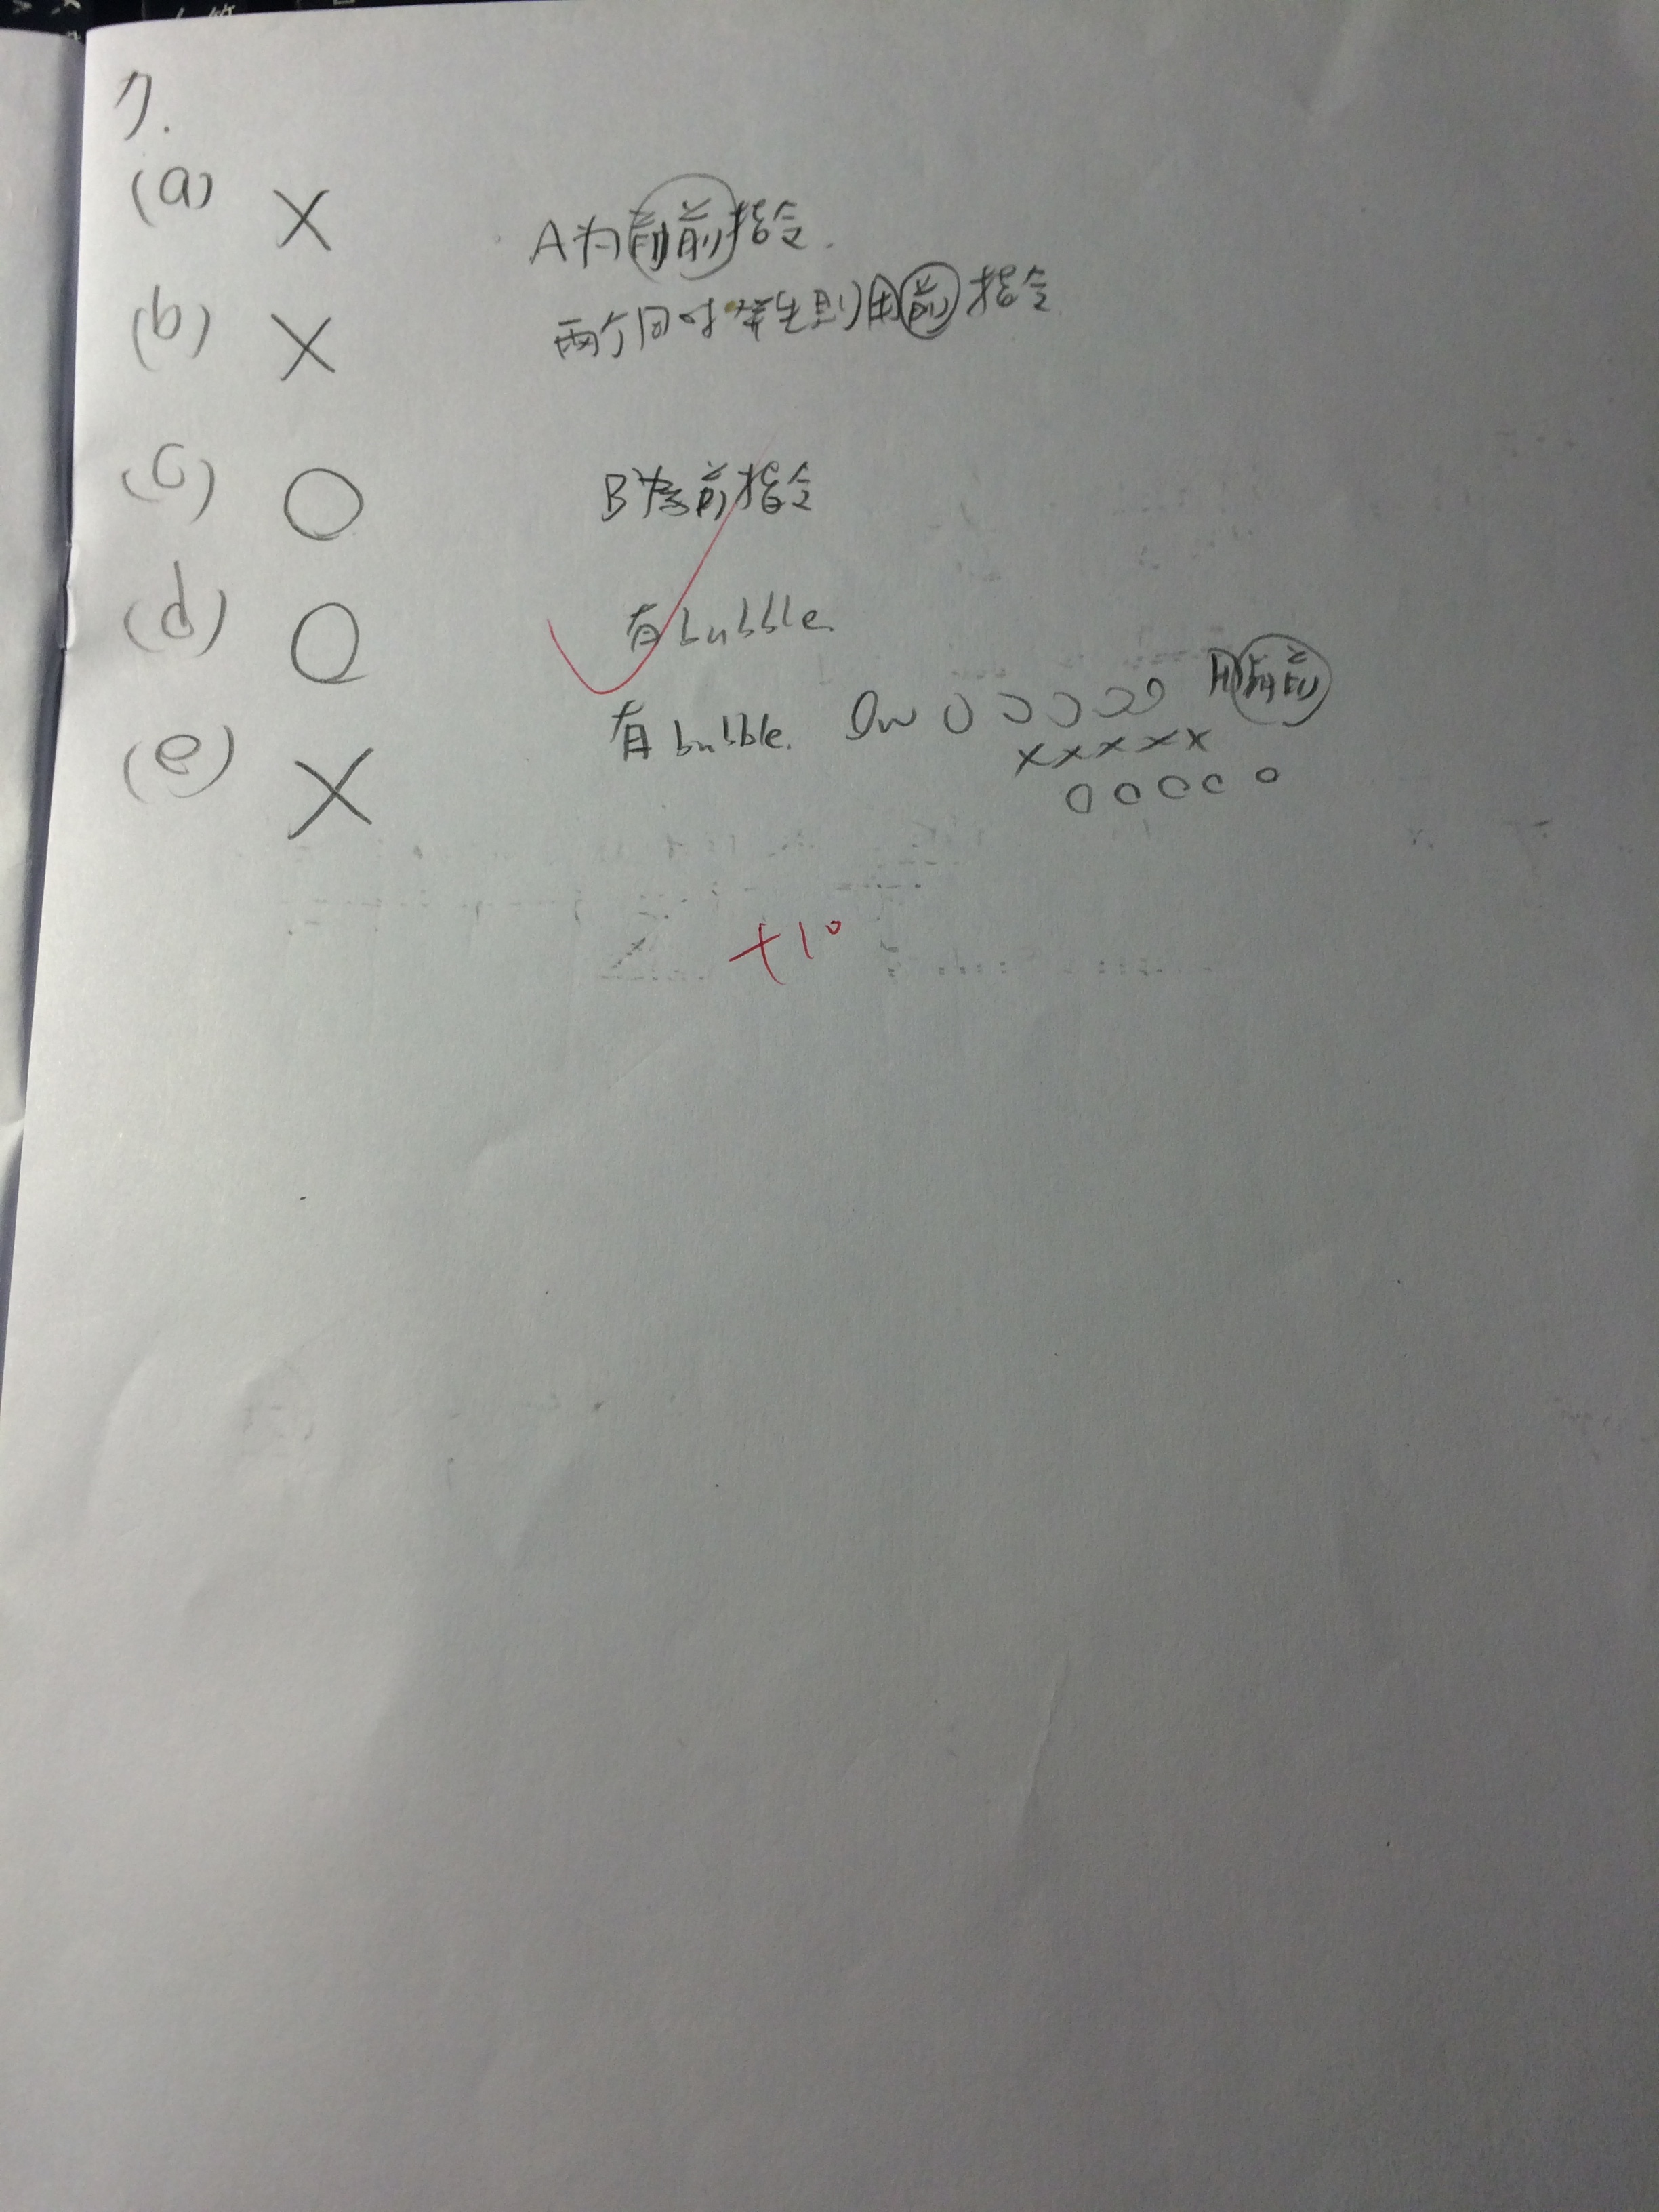 7.
(a) X A为前前指令.
(b) X 两个同时发生则用前指令
(c) O B为前指令
(d) O 有bubble.
(e) X 有bubble. lw O O O O O 用前前
X X X X X
O O O O O
+10